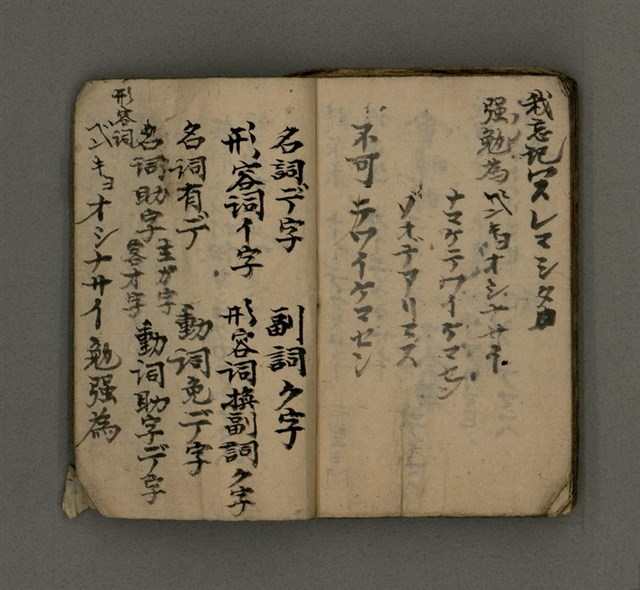 我忘記ワスレマシタ
强勉為ベンキョオシナサイ
ナマケテワイケマセン
ゾキテアリマス
不可 テワイケマセン
名詞デ字 副詞ク字
形容詞イ字 形容詞換副詞ク字
名詞有デ 動詞免デ字
名詞助字 主ガ字 客オ字 動詞助字デ字
形容詞
ベンキョオシナサイ 勉强為